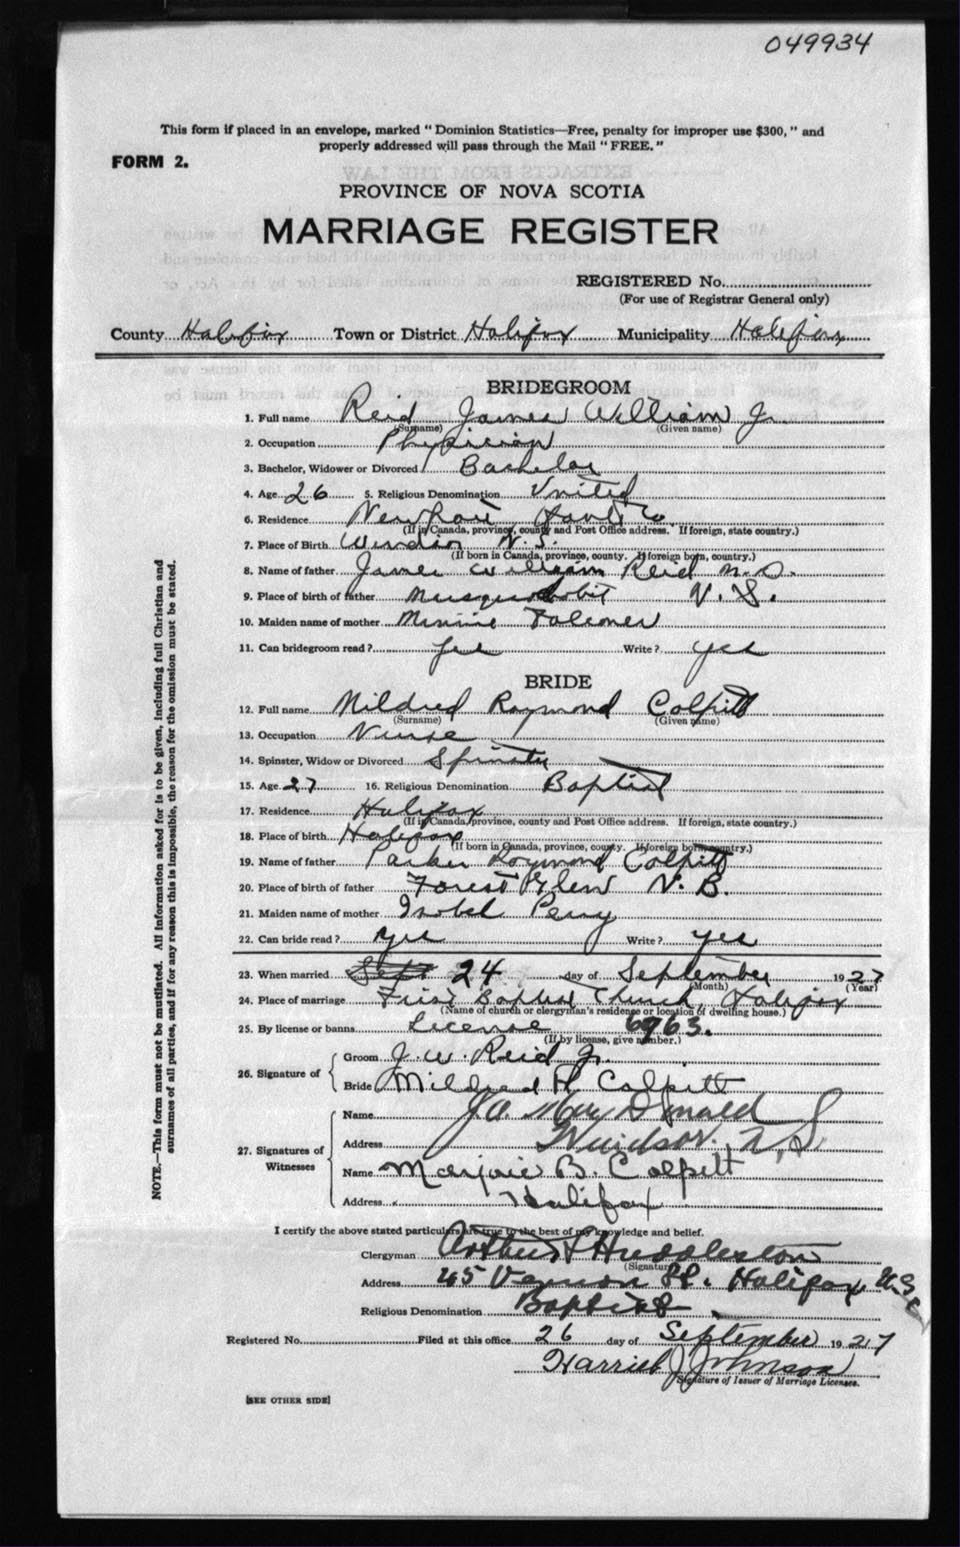 049934
This form if placed in an envelope, marked "Dominion Statistics—Free, penalty for improper use $300," and
properly addressed will pass through the Mail "FREE."
FORM 2.
PROVINCE OF NOVA SCOTIA
MARRIAGE REGISTER
REGISTERED No.
(For use of Registrar General only)
County Halifax Town or District Halifax Municipality Halifax
BRIDEGROOM
1. Full name Reid James William Jr.
(Surname) (Given name)
2. Occupation Physician
3. Bachelor, Widower or Divorced Bachelor
4. Age 26 5. Religious Denomination United
6. Residence Newport Hants Co
(If in Canada, province, county and Post Office address. If foreign, state country.)
7. Place of Birth Windsor N.S.
(If born in Canada, province, county. If foreign born, country.)
8. Name of father James William Reid M.D.
9. Place of birth of father Musquodoboit N.S.
10. Maiden name of mother Minnie Falconer
11. Can bridegroom read? Yes Write? Yes
BRIDE
12. Full name Mildred Raymond Colpitt
(Surname) (Given name)
13. Occupation Nurse
14. Spinster, Widow or Divorced Spinster
15. Age 27 16. Religious Denomination Baptist
17. Residence Halifax
(If in Canada, province, county and Post Office address. If foreign, state country.)
18. Place of birth Halifax
(If born in Canada, province, county. If foreign born, country.)
19. Name of father Parker Raymond Colpitt
20. Place of birth of father Forest Glen N.B.
21. Maiden name of mother Isobel Perry
22. Can bride read? Yes Write? Yes
23. When married Sept 24 day of September 1927
(Month) (Year)
24. Place of marriage First Baptist Church, Halifax
(Name of church or clergyman's residence or location of dwelling house.)
25. By license or banns License 6963.
(If by license, give number.)
26. Signature of Groom J. W. Reid Jr.
Bride Mildred R Colpitt
27. Signatures of Witnesses
Name J.A. MacDonald
Address Windsor. N.S.
Name Marjorie B. Colpitt
Address Halifax
I certify the above stated particulars are true to the best of my knowledge and belief.
Clergyman Arthur Huddleston
(Signature)
Address 45 Vernon St. Halifax N.S.
Religious Denomination Baptist
Registered No. Filed at this office 26 day of September 1927
Johnson
Signature of Issuer of Marriage Licenses.
[SEE OTHER SIDE]
NOTE.—This form must not be mutilated. All information asked for is to be given, including full Christian and
surnames of all parties, and if for any reason this is impossible, the reason for the omission must be stated.